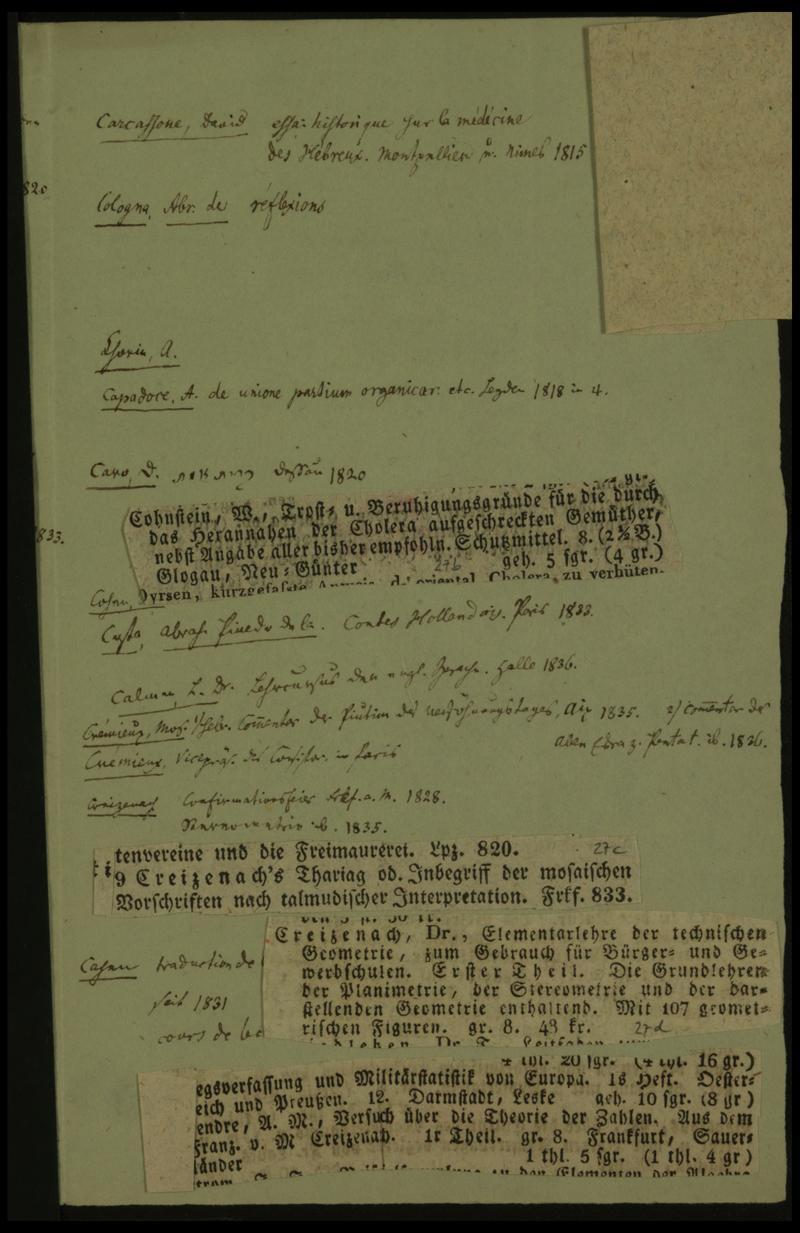 Carcassone, David essai historique sur la médécine
des Hébreux. Montpellier u. Nimes 1815
820
Cologna, Abr. de réflexions
Chorin, A.
Capadoce, A. de unione partium organicar. etc. Leyden 1818 in 4.
Caro, D. Dessau 1820
833.
Cohnstein, W., Trost= u. Beruhigungsgründe für die durch
das Herannahen der Cholera aufgeschreckten Gemüther,
nebst Angabe aller bisher empfohln. Schutzmittel. 8. (2½ B.)
Glogau, Neu=Günter 27b geh. 5 sgr. (4 gr.)
Cohen, Dyrsen, kurzgefaßte d. oriental. Cholera, zu verhüten.
Costa, Abrah. Pinedo de la. Contes Hollandois. Paris 1833.
Calman, L. Dr. Lehrcursus der engl. Sprache. Halle 1836.
Crémieux, Mos. Hebr. Comentar der Piutim des Versöhnungstages, Aix 1835. 2) Comentar des
Aben Esra z. Pentat. ib. 1836.
Crémieux, Vicepräs. des Consistor. in Paris
Creizenach Confirmationsfeier Frkf. a. M. 1828.
ib. 1835.
tenvereine und die Freimaurerei. Lpz. 820. 27c
9 Creizenach's Thariag od. Inbegriff der mosaischen
Vorschriften nach talmudischer Interpretation. Frkf. 833.
Creizenach, Dr., Elementarlehre der technischen
Geometrie, zum Gebrauch für Bürger= und Ge=
werbschulen. Erster Theil. Die Grundlehren
der Planimetrie, der Stereometrie und der dar=
stellenden Geometrie enthaltend. Mit 107 geomet=
rischen Figuren. gr. 8. 48 kr. 27d
Cahen traduction de
seit 1831
cours de
20 sgr. 16 gr.)
egsverfassung und Militärstatistik von Europa. 1s Heft. Oester=
eich und Preußen. 12. Darmstadt, Leske geh. 10 sgr. (8 gr)
endre, A. M., Versuch über die Theorie der Zahlen. Aus dem
Franz. v. M Creizenah. 1r Theil. gr. 8. Frankfurt, Sauer=
länder 1 thl. 5 sgr. (1 thl. 4 gr)